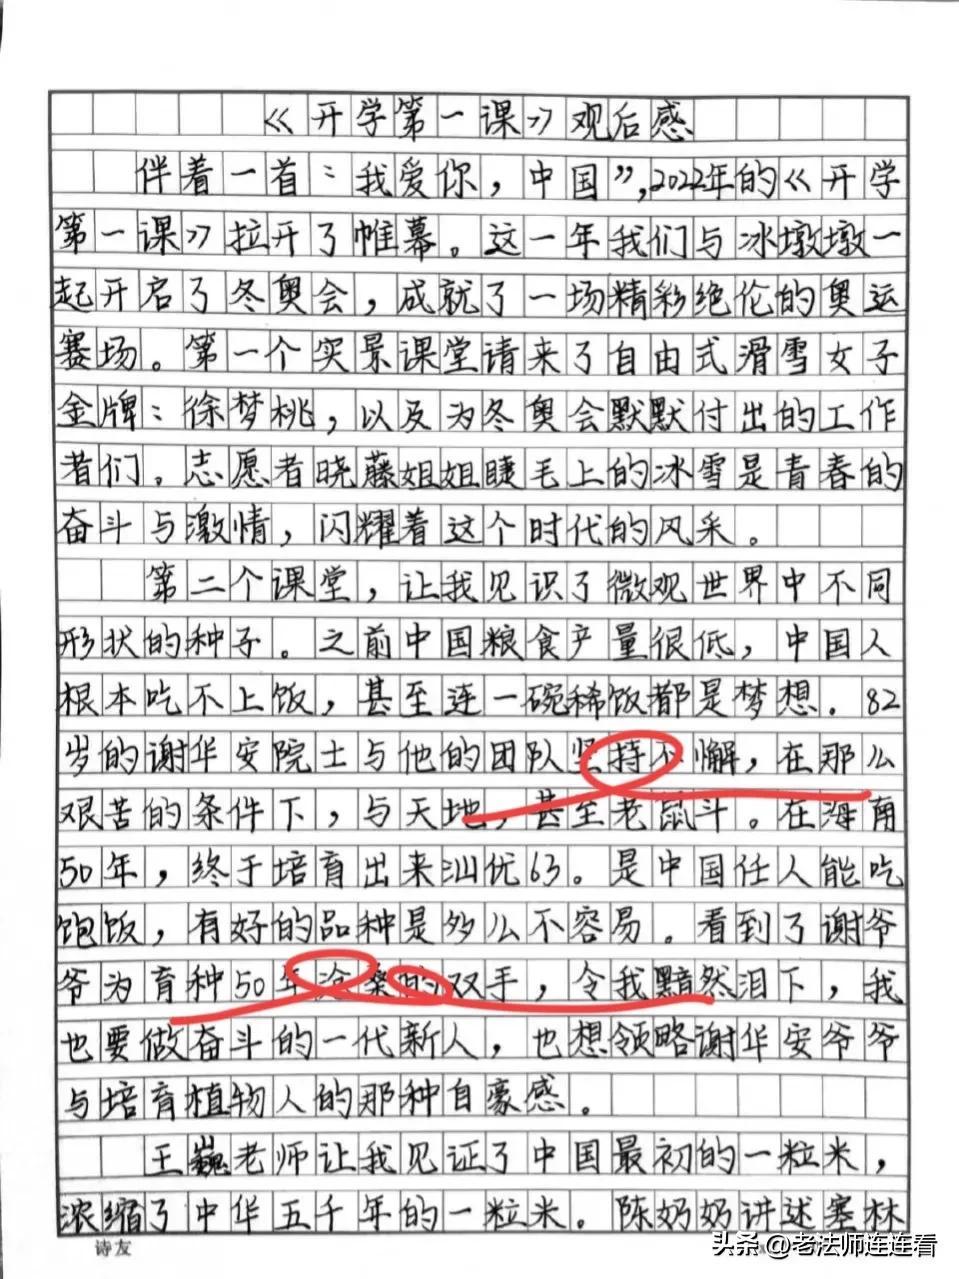 《开学第一课》观后感
伴着一首：我爱你，中国”,2022年的《开学
第一课》拉开了帷幕。这一年我们与冰墩墩一
起开启了冬奥会，成就了一场精彩绝伦的奥运
赛场。第一个实景课堂请来了自由式滑雪女子
金牌：徐梦桃，以及为冬奥会默默付出的工作
者们。志愿者晓藤姐姐睫毛上的冰雪是青春的
奋斗与激情，闪耀着这个时代的风采。
第二个课堂，让我见识了微观世界中不同
形状的种子。之前中国粮食产量很低，中国人
根本吃不上饭，甚至连一碗稀饭都是梦想。82
岁的谢华安院士与他的团队坚持不懈，在那么
艰苦的条件下，与天地，甚至老鼠斗。在海南
50年，终于培育出来汕优63。是中国任人能吃
饱饭，有好的品种是多么不容易。看到了谢爷
爷为育种50年沧桑的双手，令我黯然泪下，我
也要做奋斗的一代新人，也想领略谢华安爷爷
与培育植物人的那种自豪感。
王巍老师让我见证了中国最初的一粒米，
浓缩了中华五千年的一粒米。陈奶奶讲述塞林
诗友
头条@老法师连连看